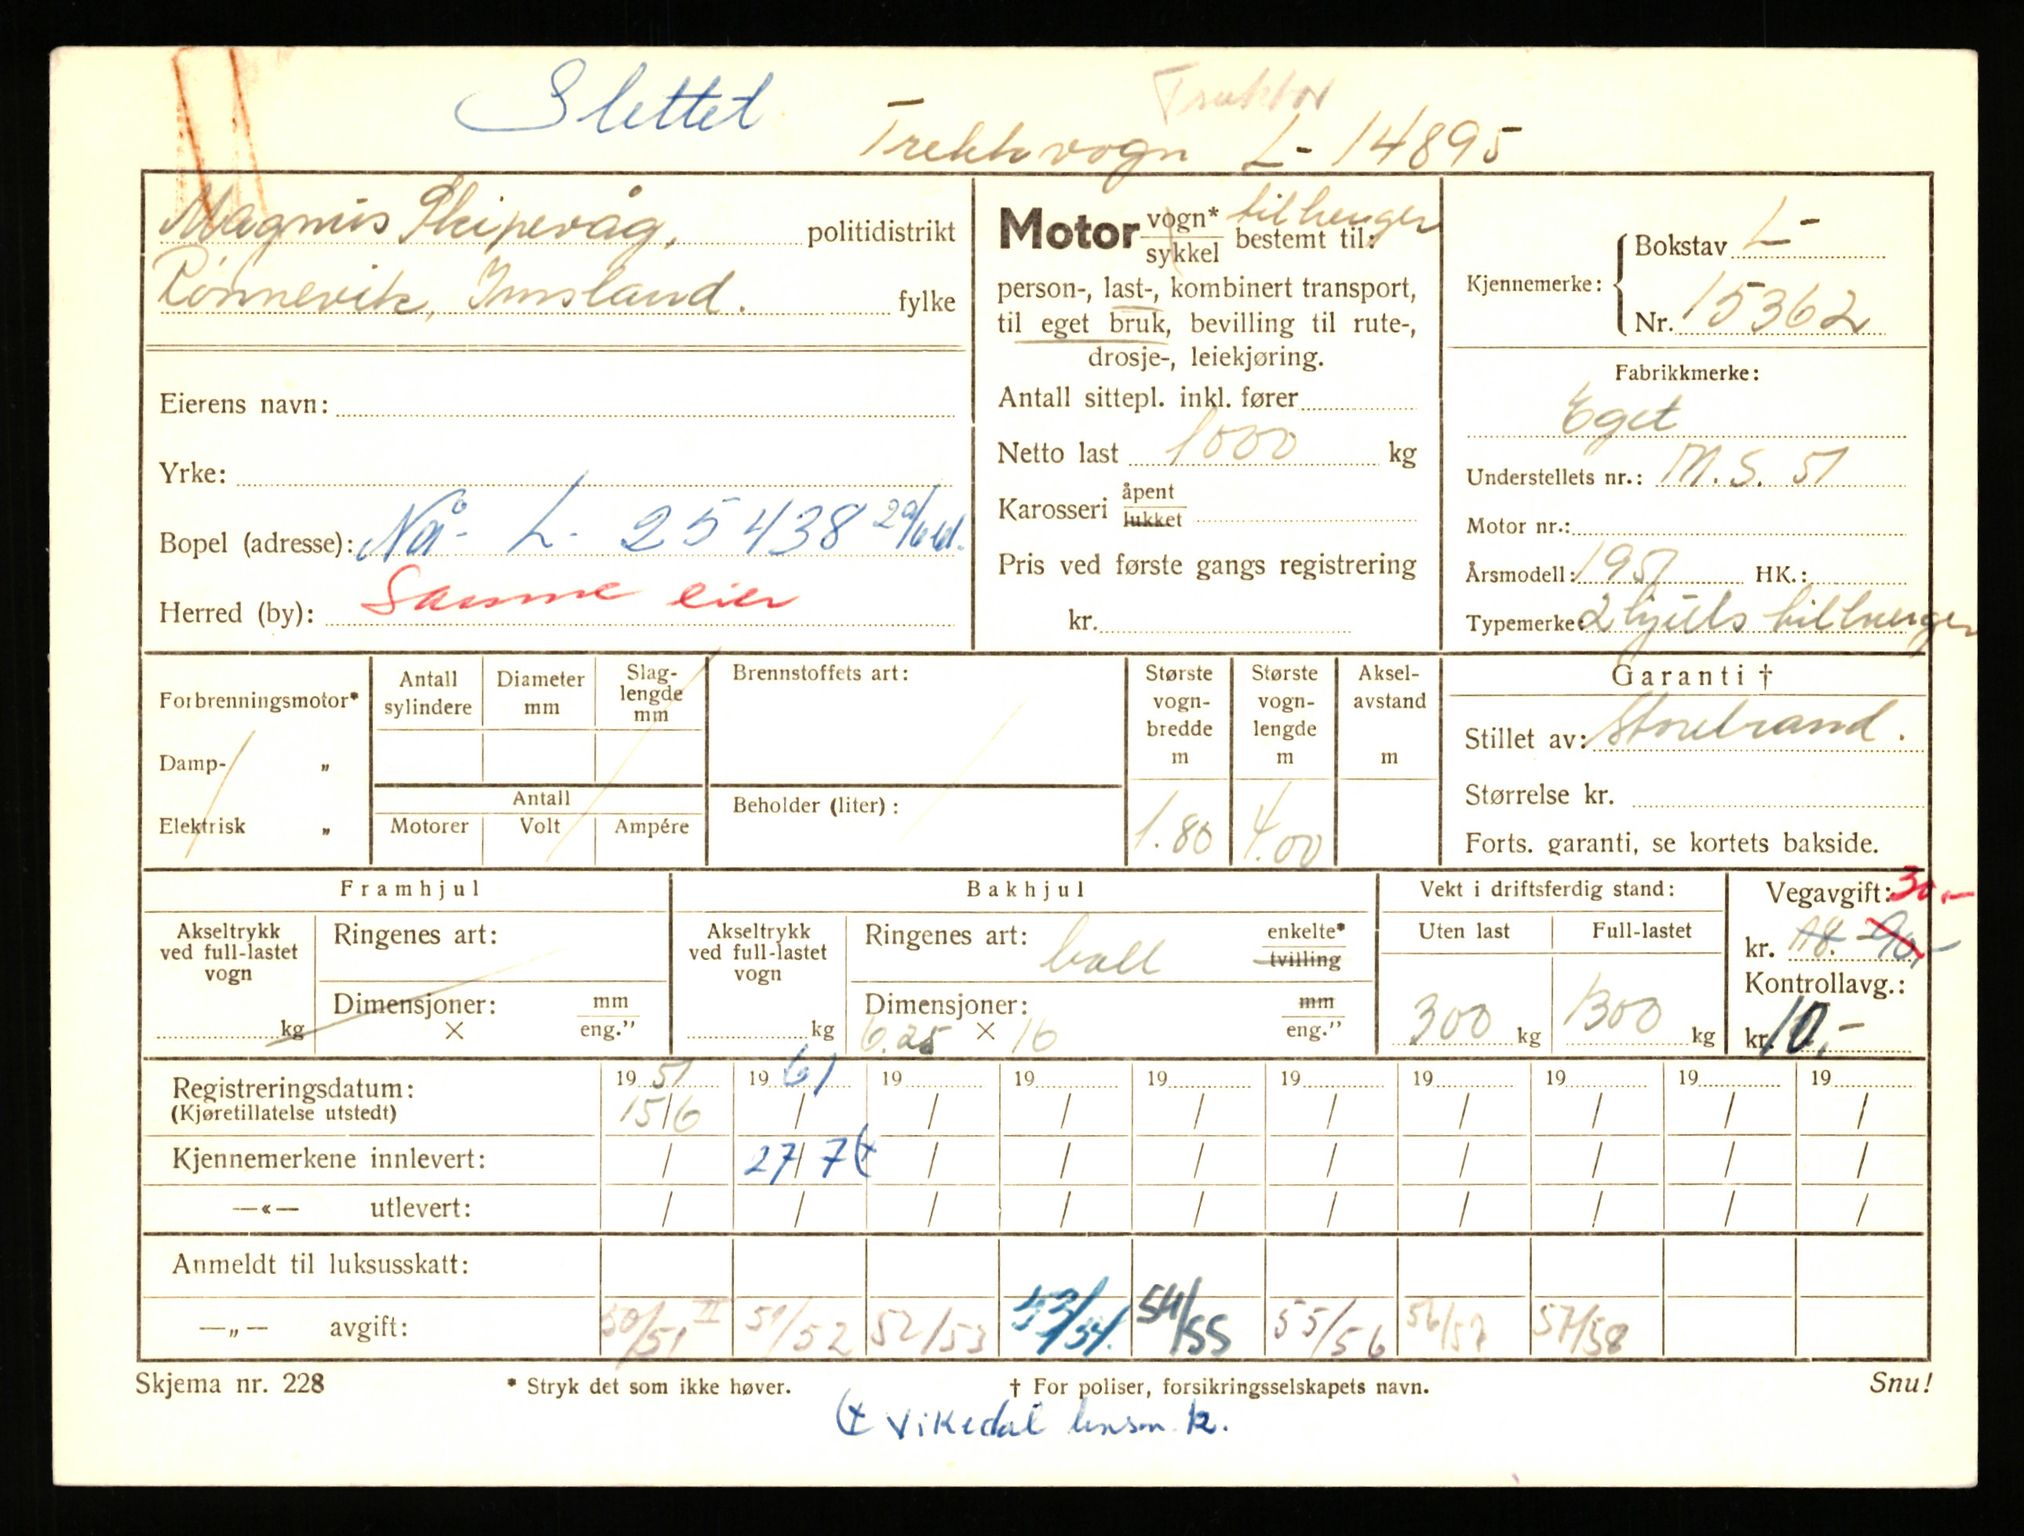 Slettet
Traktor
Trekkvogn L- 14895
Magnus Skipevåg, politidistrikt
Rønnevik, Imsland. fylke
Eierens navn:
Yrke:
Bopel (adresse): Nå- L- 25438 29/6 61.
Herred (by): Samme eier
Motor vogn* tilhenger
sykkel bestemt til:
person-, last-, kombinert transport,
til eget bruk, bevilling til rute-,
drosje-, leiekjøring.
Antall sittepl. inkl. fører
Netto last 1000 kg
Karosseri åpent
lukket
Pris ved første gangs registrering
kr.
Kjennemerke: Bokstav L-
Nr. 15362
Fabrikkmerke:
Eget
Understellets nr.: M. S. 51
Motor nr.:
Årsmodell: 1951 HK.:
Typemerke: 2 hjuls tilhenger
Forbrenningsmotor*
Damp- „
Elektrisk „
Antall sylindere
Diameter mm
Slag-lengde mm
Antall
Motorer Volt Ampére
Brennstoffets art:
Beholder (liter) :
Største vogn-bredde m
1.80
Største vogn-lengde m
4.00
Aksel-avstand m
Garanti †
Stillet av: Storebrand.
Størrelse kr.
Forts. garanti, se kortets bakside.
Framhjul
Akseltrykk ved full-lastet vogn
kg
Ringenes art:
Dimensjoner: mm
× eng.”
Bakhjul
Akseltrykk ved full-lastet vogn
kg
Ringenes art: ball enkelte*
tvilling
Dimensjoner: mm
6.25 × 16 eng.”
Vekt i driftsferdig stand:
Uten last Full-lastet
300 kg 1300 kg
Vegavgift: 30,-
kr. 18.- 90,-
Kontrollavg.:
kr. 10,-
Registreringsdatum: 19 51 19 61 19 19 19 19 19 19 19 19
(Kjøretillatelse utstedt) 15/6 / / / / / / / / /
Kjennemerkene innlevert: / 27/7 (+ / / / / / / / /
—«— utlevert: / / / / / / / / / /
Anmeldt til luksusskatt:
—„— avgift: 50/51 II 51/52 52/53 53/54. 54/55 55/56 56/57 57/58
Skjema nr. 228 * Stryk det som ikke høver. † For poliser, forsikringsselskapets navn. Snu!
(+ Vikedal lensm. k.